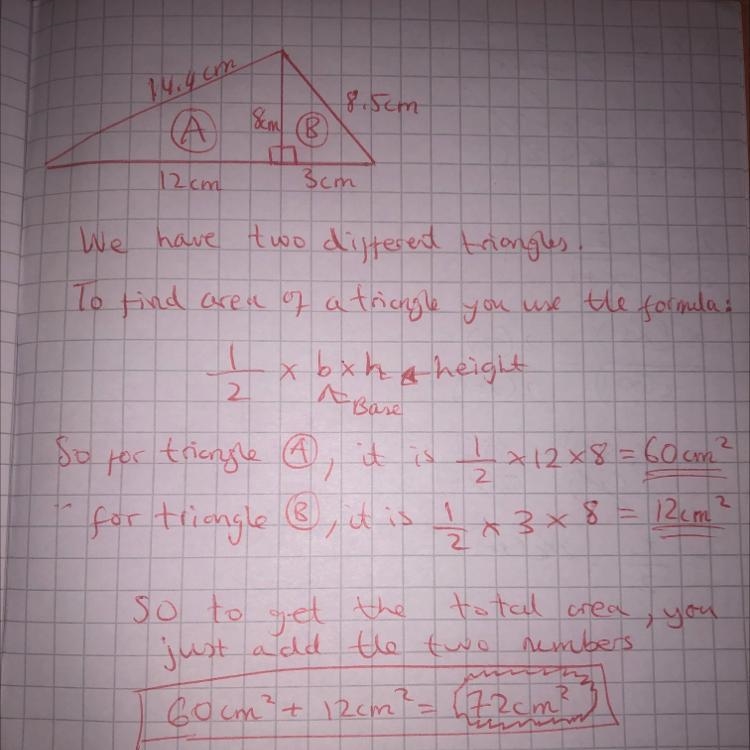 14.4cm
8cm
8.5cm
A
B
12cm
3cm
We have two different triangles.
To find area of a triangle you use the formula:
1/2 × b × h ← height
↑ Base
So for triangle Ⓐ, it is 1/2 × 12 × 8 = 60cm²
" for triangle Ⓑ, it is 1/2 × 3 × 8 = 12cm²
So to get the total area, you
just add the two numbers
60cm² + 12cm² = 72cm²